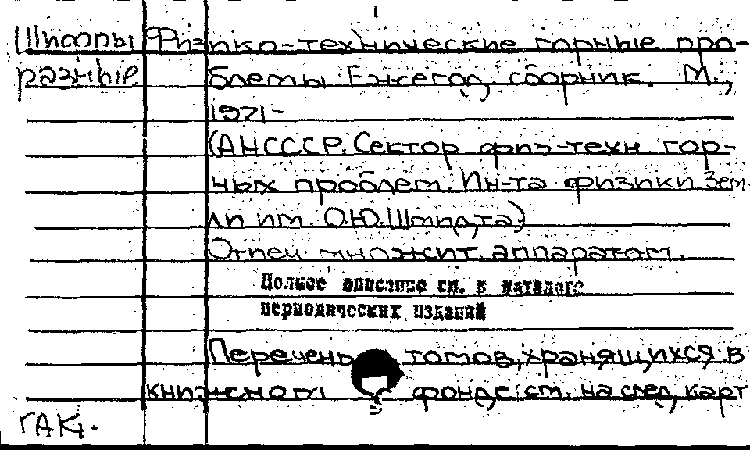 Шифры Физико-технические горные про-
разные блемы. Ежегод. сборник. М.,
1971-
(АН СССР. Сектор физ-техн гор-
ных проблем. Ин-та физики Зем-
ли им. О.Ю.Шмидта)
Отпеч. множит. аппаратом.
Полное описание см. в каталоге
периодических изданий
Перечень томов, хранящихся в
книжном фонде, см. на след. карт
ГАК.